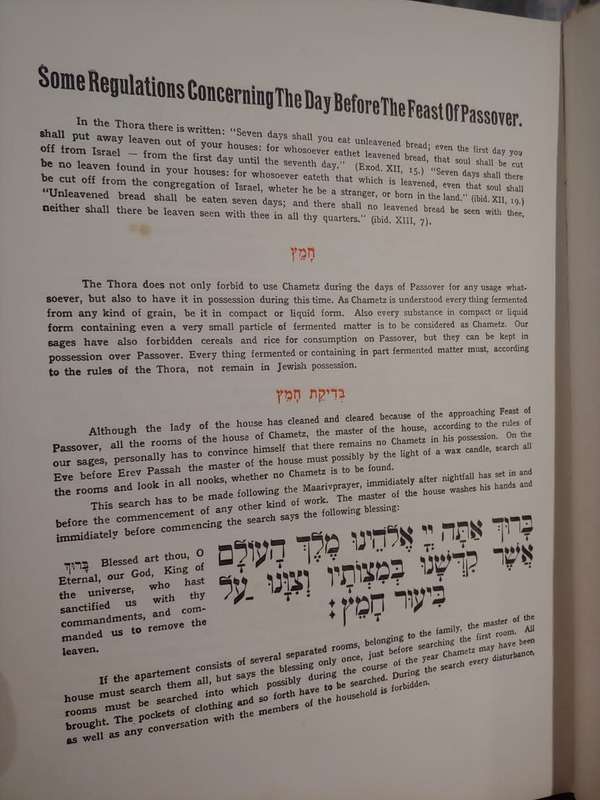 Some Regulations Concerning The Day Before The Feast Of Passover.
In the Thora there is written: "Seven days shall you eat unleavened bread; even the first day you
shall put away leaven out of your houses: for whosoever eathet leavened bread, that soul shall be cut
off from Israel — from the first day until the seventh day." (Exod. XII, 15.) "Seven days shall there
be no leaven found in your houses: for whosoever eateth that which is leavened, even that soul shall
be cut off from the congregation of Israel, wheter he be a stranger, or born in the land." (ibid. XII, 19.)
"Unleavened bread shall be eaten seven days; and there shall no leavened bread be seen with thee,
neither shall there be leaven seen with thee in all thy quarters." (ibid. XIII, 7).
חָמֵץ
The Thora does not only forbid to use Chametz during the days of Passover for any usage what-
soever, but also to have it in possession during this time. As Chametz is understood every thing fermented
from any kind of grain, be it in compact or liquid form. Also every substance in compact or liquid
form containing even a very small particle of fermented matter is to be considered as Chametz. Our
sages have also forbidden cereals and rice for consumption on Passover, but they can be kept in
possession over Passover. Every thing fermented or containing in part fermented matter must, according
to the rules of the Thora, not remain in Jewish possession.
בְּדִיקַת חָמֵץ
Although the lady of the house has cleaned and cleared because of the approaching Feast of
Passover, all the rooms of the house of Chametz, the master of the house, according to the rules of
our sages, personally has to convince himself that there remains no Chametz in his possession. On the
Eve before Erev Passah the master of the house must possibly by the light of a wax candle, search all
the rooms and look in all nooks, whether no Chametz is to be found.
This search has to be made following the Maarivprayer, immidiately after nightfall has set in and
before the commencement of any other kind of work. The master of the house washes his hands and
immidiately before commencing the search says the following blessing:
בָּרוּךְ Blessed art thou, O
Eternal, our God, King of
the universe, who hast
sanctified us with thy
commandments, and com-
manded us to remove the
leaven.
בָּרוּךְ אַתָּה יְיָ אֱלֹהֵינוּ מֶלֶךְ הָעוֹלָם
אֲשֶׁר קִדְּשָׁנוּ בְּמִצְוֹתָיו וְצִוָּנוּ עַל
בִּיעוּר חָמֵץ:
If the apartement consists of several separated rooms, belonging to the family, the master of the
house must search them all, but says the blessing only once, just before searching the first room. All
rooms must be searched into which possibly during the course of the year Chametz may have been
brought. The pockets of clothing and so forth have to be searched. During the search every disturbance,
as well as any conversation with the members of the household is forbidden.